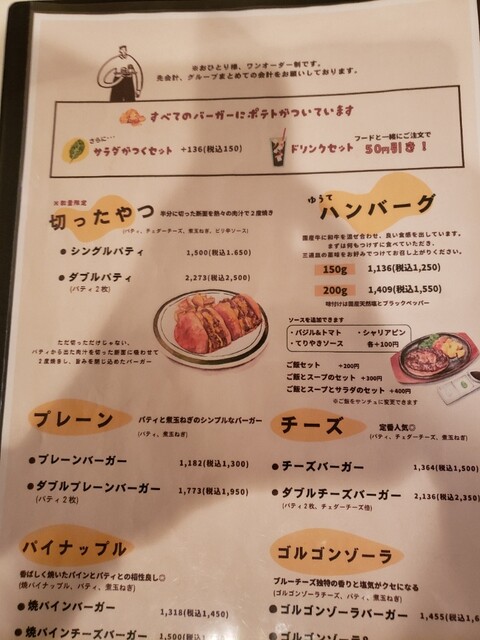 ※おひとり様、ワンオーダー制です。
先会計、グループまとめての会計をお願いしております。
すべてのバーガーにポテトがついています
さらに…
サラダがつくセット +136(税込150)
フードと一緒にご注文で
ドリンクセット 50円引き!
※数量限定
切ったやつ
半分に切った断面を熱々の肉汁で2度焼き
(パティ、チェダーチーズ、煮玉ねぎ、ピリ辛ソース)
●シングルパティ 1,500(税込1.650)
●ダブルパティ 2,273(税込2,500)
(パティ2枚)
ただ切っただけじゃない、
パティから出た肉汁を切った断面に吸わせて
2度焼きし、旨みを閉じ込めたバーガー
ゆうて
ハンバーグ
国産牛に和牛を混ぜ合わせ、良い食感を出しています。
まずは何もつけずに食べていただき、
三道皿の薬味をお好みでつけてお召し上がりください。
150g 1,136(税込1,250)
200g 1,409(税込1,550)
味付けは国産天然塩とブラックペッパー
ソースを追加できます
・バジル&トマト ・シャリアピン
・てりやきソース 各+100円
ご飯セット +200円
ご飯とスープのセット +300円
ご飯とスープとサラダのセット +400円
※ご飯をサンチュに変更できます
プレーン
パティと煮玉ねぎのシンプルなバーガー
(パティ、煮玉ねぎ)
●プレーンバーガー 1,182(税込1,300)
●ダブルプレーンバーガー 1,773(税込1,950)
(パティ2枚)
チーズ
定番人気◎
(パティ、チェダーチーズ、煮玉ねぎ)
●チーズバーガー 1,364(税込1,500)
●ダブルチーズバーガー 2,136(税込2,350)
(パティ2枚、チェダーチーズ倍)
パイナップル
香ばしく焼いたパインとパティとの相性良し◎
(焼パイナップル、パティ、煮玉ねぎ)
●焼パインバーガー 1,318(税込1,450)
●焼パインチーズバーガー 1,500(税込
ゴルゴンゾーラ
ブルーチーズ独特の香りと塩気がクセになる
(ゴルゴンゾーラチーズ、パティ、煮玉ねぎ)
●ゴルゴンゾーラバーガー 1,455(税込1,6